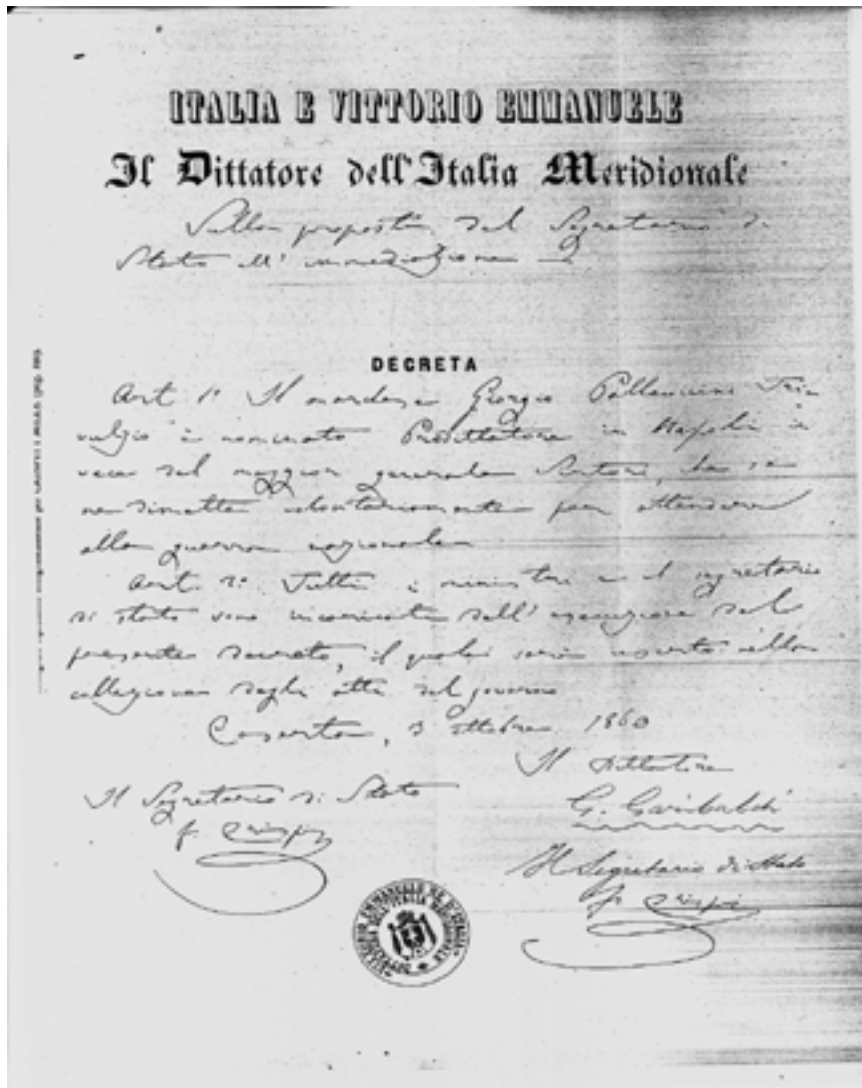 ITALIA E VITTORIO EMMANUELE
Il Dittatore dell'Italia Meridionale
Sulla proposta del Segretario di
Stato
DECRETA
Art. 1º Il marchese Giorgio Pallavicino Tri
vulzio è nominato Prodittatore in Napoli in
vece del maggior generale Sirtori, che se
ne dimette volontariamente per attendere
alla guerra nazionale
Art. 2º Tutti i ministri e il segretario
di stato sono incaricati dell'esecuzione del
presente decreto, il quale sarà inserto nella
collezione degli atti del governo
Caserta, 3 ottobre 1860
Il Dittatore
G. Garibaldi
Il Segretario di Stato
F. Crispi
Il Segretario di Stato
F. Crispi